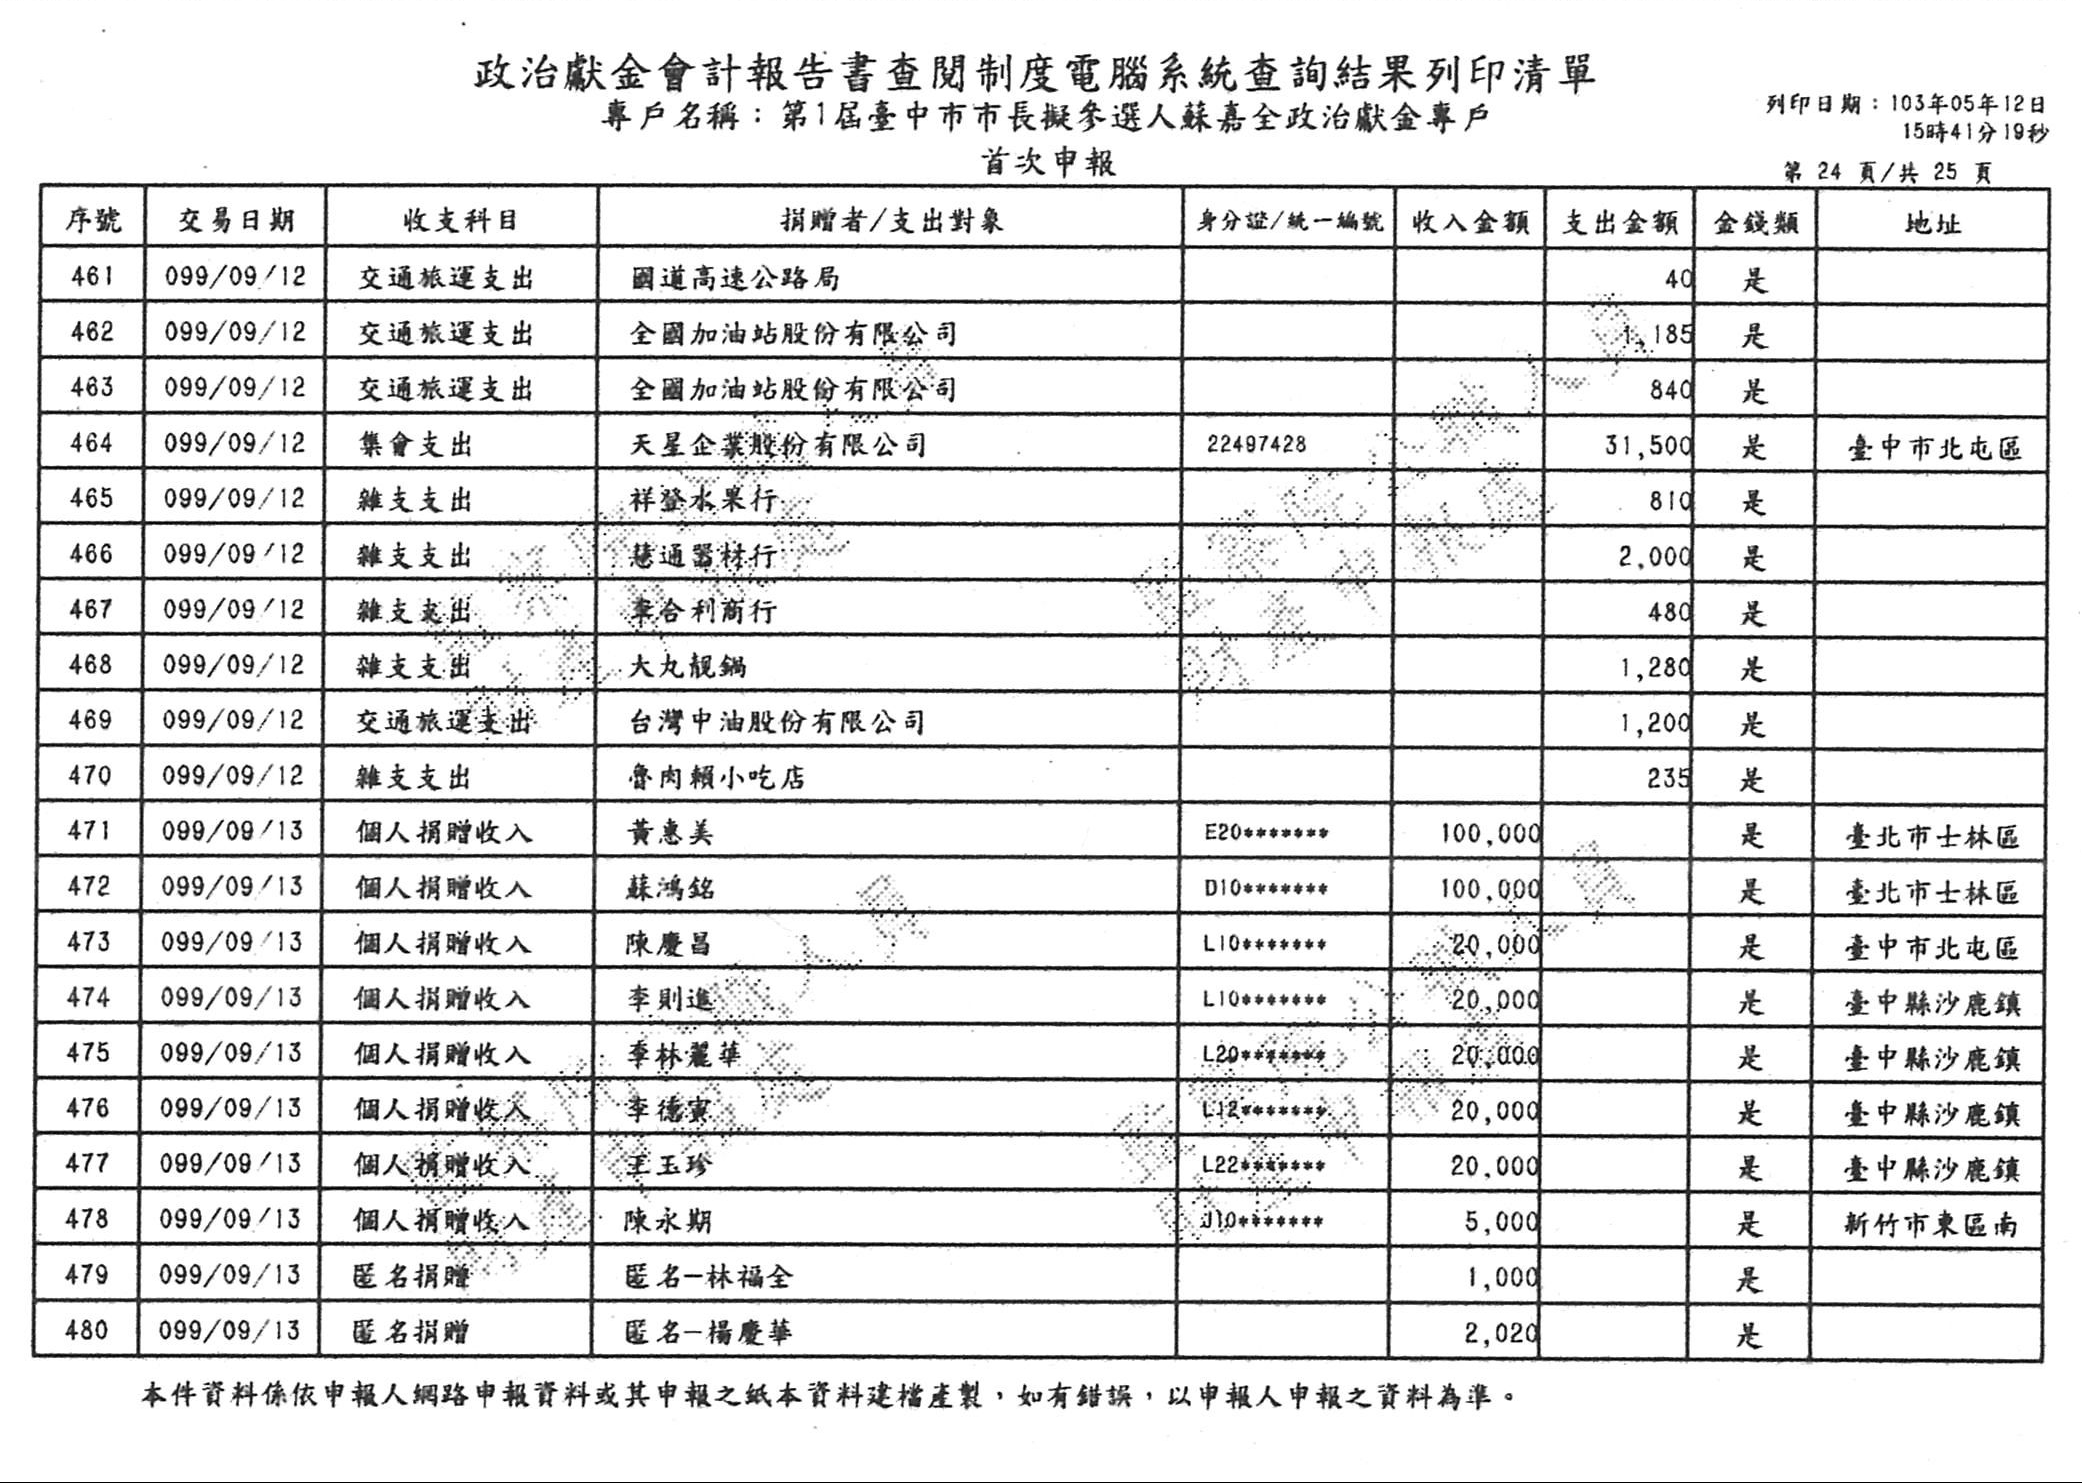 政治獻金會計報告書查閱制度電腦系統查詢結果列印清單
專戶名稱：第1屆臺中市市長擬參選人蘇嘉全政治獻金專戶
列印日期：103年05年12日
15時41分19秒
首次申報
第 24 頁/共 25 頁
序號 交易日期 收支科目 捐贈者/支出對象 身分證/統一編號 收入金額 支出金額 金錢類 地址
461 099/09/12 交通旅運支出 國道高速公路局 40 是
462 099/09/12 交通旅運支出 全國加油站股份有限公司 1,185 是
463 099/09/12 交通旅運支出 全國加油站股份有限公司 840 是
464 099/09/12 集會支出 天星企業股份有限公司 22497428 31,500 是 臺中市北屯區
465 099/09/12 雜支支出 祥登水果行 810 是
466 099/09/12 雜支支出 慧通器材行 2,000 是
467 099/09/12 雜支支出 聿合利商行 480 是
468 099/09/12 雜支支出 大丸靓鍋 1,280 是
469 099/09/12 交通旅運支出 台灣中油股份有限公司 1,200 是
470 099/09/12 雜支支出 魯肉賴小吃店 235 是
471 099/09/13 個人捐贈收入 黃惠美 E20******* 100,000 是 臺北市士林區
472 099/09/13 個人捐贈收入 蘇鴻銘 D10******* 100,000 是 臺北市士林區
473 099/09/13 個人捐贈收入 陳慶昌 L10******* 20,000 是 臺中市北屯區
474 099/09/13 個人捐贈收入 李則進 L10******* 20,000 是 臺中縣沙鹿鎮
475 099/09/13 個人捐贈收入 李林麗華 L20******* 20,000 是 臺中縣沙鹿鎮
476 099/09/13 個人捐贈收入 李德寅 L12******* 20,000 是 臺中縣沙鹿鎮
477 099/09/13 個人捐贈收入 王玉珍 L22******* 20,000 是 臺中縣沙鹿鎮
478 099/09/13 個人捐贈收入 陳永期 J10******* 5,000 是 新竹市東區南
479 099/09/13 匿名捐贈 匿名-林福全 1,000 是
480 099/09/13 匿名捐贈 匿名-楊慶華 2,020 是
本件資料係依申報人網路申報資料或其申報之紙本資料建檔產製，如有錯誤，以申報人申報之資料為準。